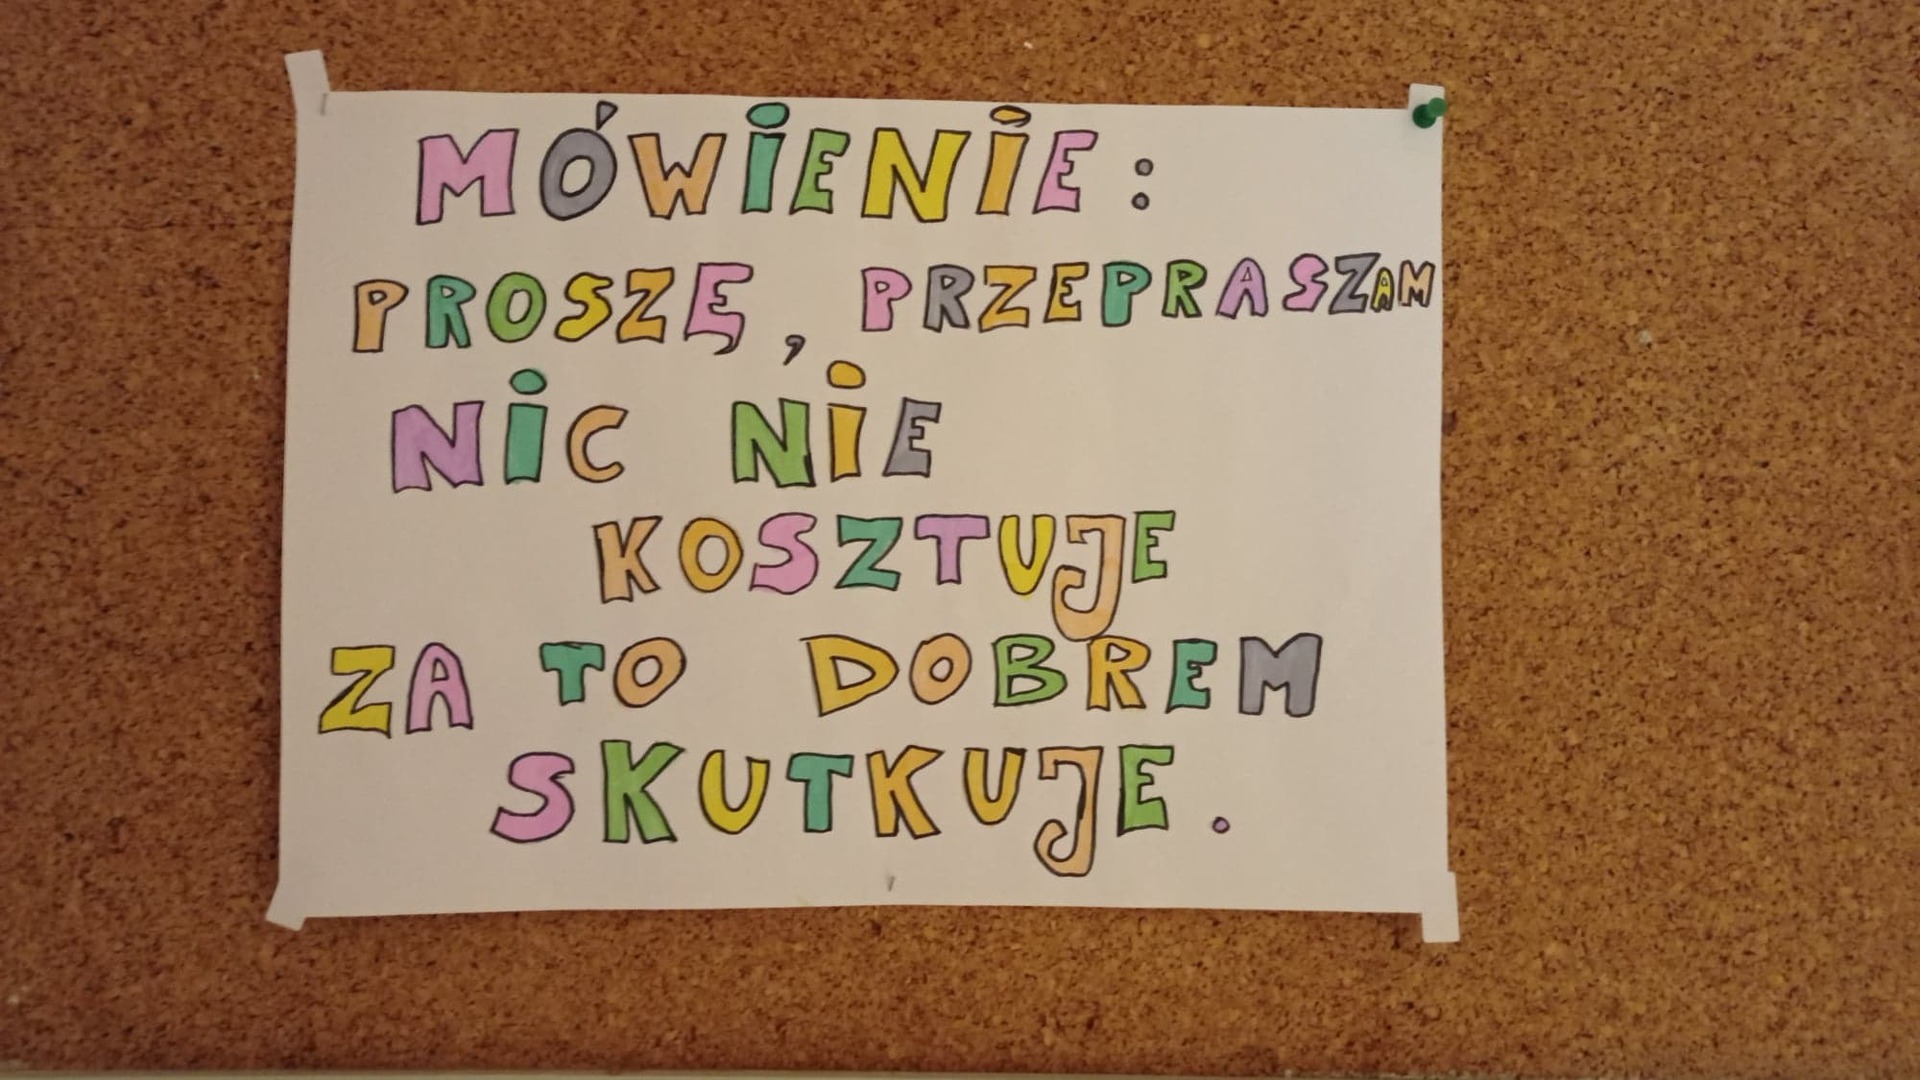 MÓWIENIE:
PROSZĘ, PRZEPRASZAM
NIC NIE
KOSZTUJE
ZA TO DOBREM
SKUTKUJE.